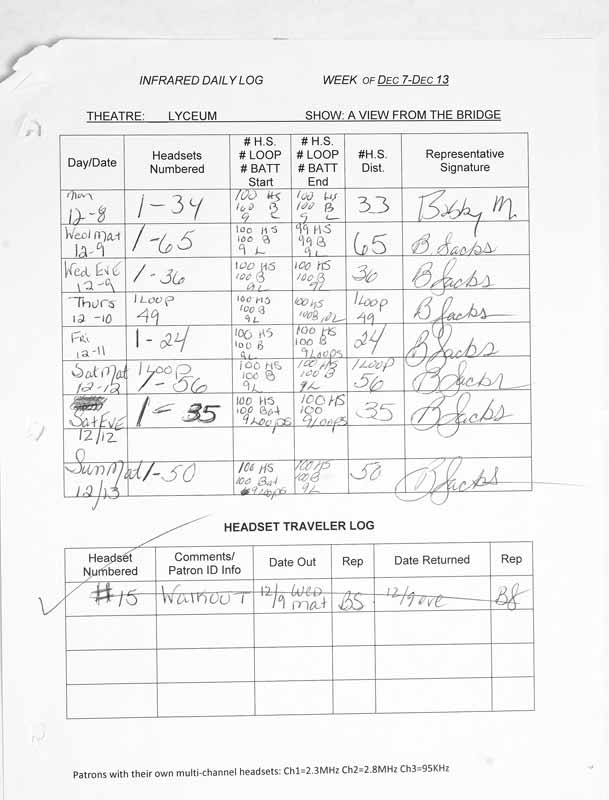 INFRARED DAILY LOG WEEK OF DEC 7-DEC 13
THEATRE: LYCEUM SHOW: A VIEW FROM THE BRIDGE
Day/Date Headsets Numbered # H.S. # LOOP # BATT Start # H.S. # LOOP # BATT End #H.S. Dist. Representative Signature
Mon 12-8 1-34 100 HS 100 B 9 L 100 HS 100 B 9 L 33 Bobby M.
Wed Mat 12-9 1-65 100 HS 100 B 9 L 99 HS 99 B 9L 65 B. Jacks
Wed EVE 12-9 1-36 100 HS 100 B 9L 100 HS 100 B 9L 36 B Jacks
Thurs 12-10 1 LOOP 49 100 HS 100 B 9L 100 HS 100B 10L 1 LOOP 49 B Jacks
Fri 12-11 1-24 100 HS 100 B 9L 100 HS 100B 9 LOOPS 24 B Jacks
Sat Mat 12-12 1 LOOP 1-56 100 HS 100 B 9L 100 HS 100 B 9L 1 LOOP 56 B Jacks
Sat EVE 12/12 1-35 100 HS 100 Bat 9 LOOPS 100 HS 100 9 LOOPS 35 B Jacks
Sun Mat 12/13 1-50 100 HS 100 Bat 9 LOOPS 100 HS 100 B 9 L 50 B Jacks
HEADSET TRAVELER LOG
Headset Numbered Comments/ Patron ID Info Date Out Rep Date Returned Rep
#15 WalkOUT 12/9 Wed mat BJ 12/9 eve BJ
Patrons with their own multi-channel headsets: Ch1=2.3MHz Ch2=2.8MHz Ch3=95KHz